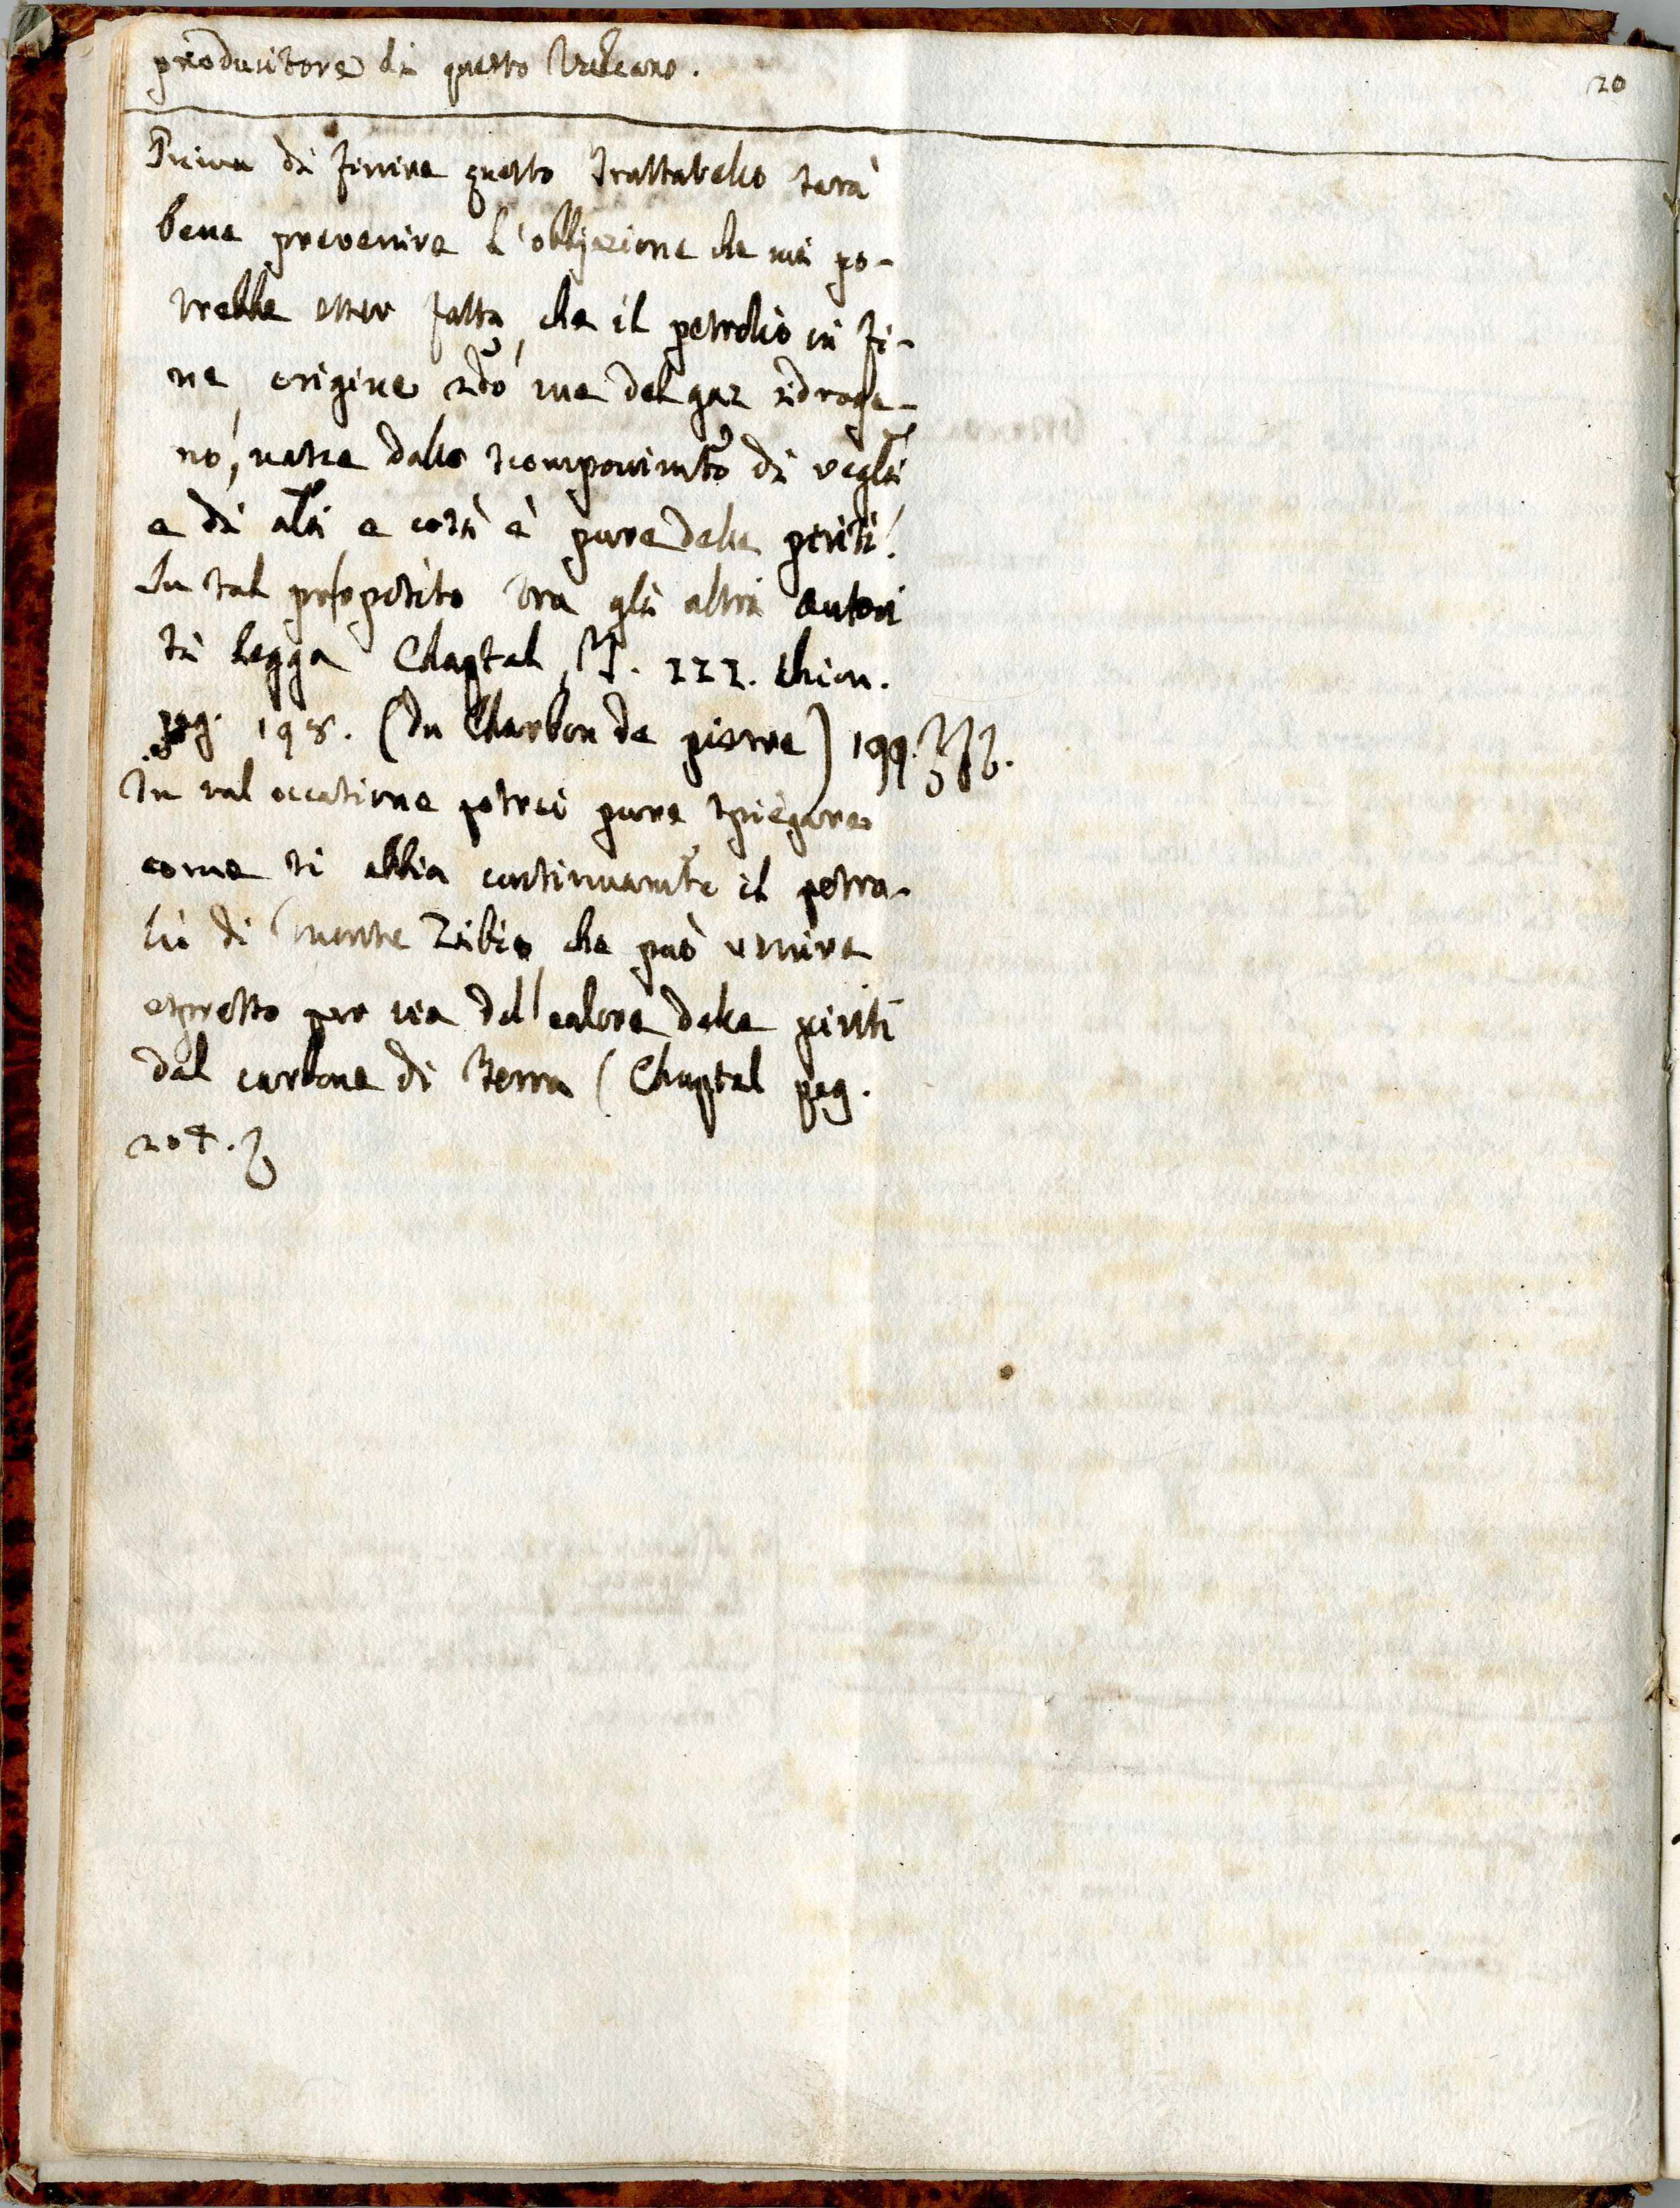 producitore di questo Vulcano.
20
Prima di finire questo Trattatello sarà
bene prevenire l'obbjezione che mi po-
trebbe esser fatta, che il petrolio in fi-
ne, origine 2do me del gaz idroge-
no, nasce dallo scomponimto di vegli
e di ali e così è pure delle piriti.
In tal proposito tra gli altri autori
si legga Chaptal T. III. Chim.
pag. 198. (Du Charbon de pierre) 199.
In tal occasione potrei pure spiegare
come si abbia continuamte il petro-
lio di Monte Zibio che può venire
espresso per via del calore delle piriti
dal carbone di Terra (Chaptal pag.
204.)